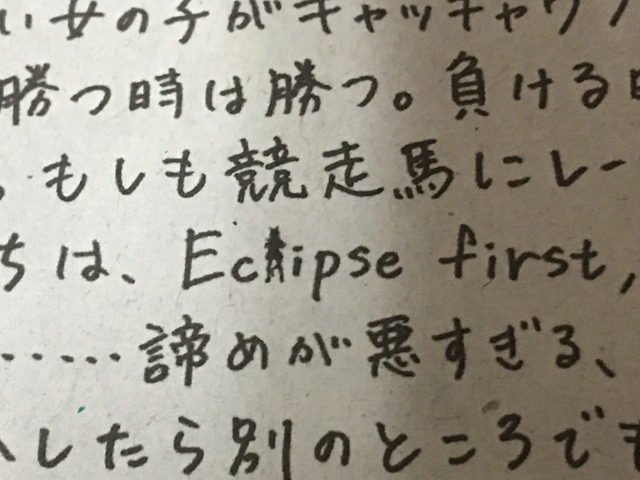 い女の子がキャッキャウフ
勝つ時は勝つ。負ける時
。もしも競走馬にレー
ちは、Eclipse first,
……諦めが悪すぎる、
したら別のところでも